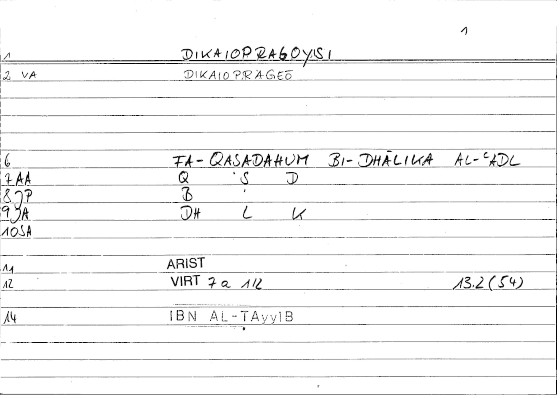 1
1 DIKAIOPRAGOYSI
2 VA DIKAIOPRAGEŌ
6 FA-QASADAHUM BI-DHĀLIKA AL-ʿADL
7AA Q Ṣ D
8JP B
9JA DH L K
10SA
11 ARIST
12 VIRT 7 a 1/2 13.2 (54)
14 IBN AL-TAyyIB